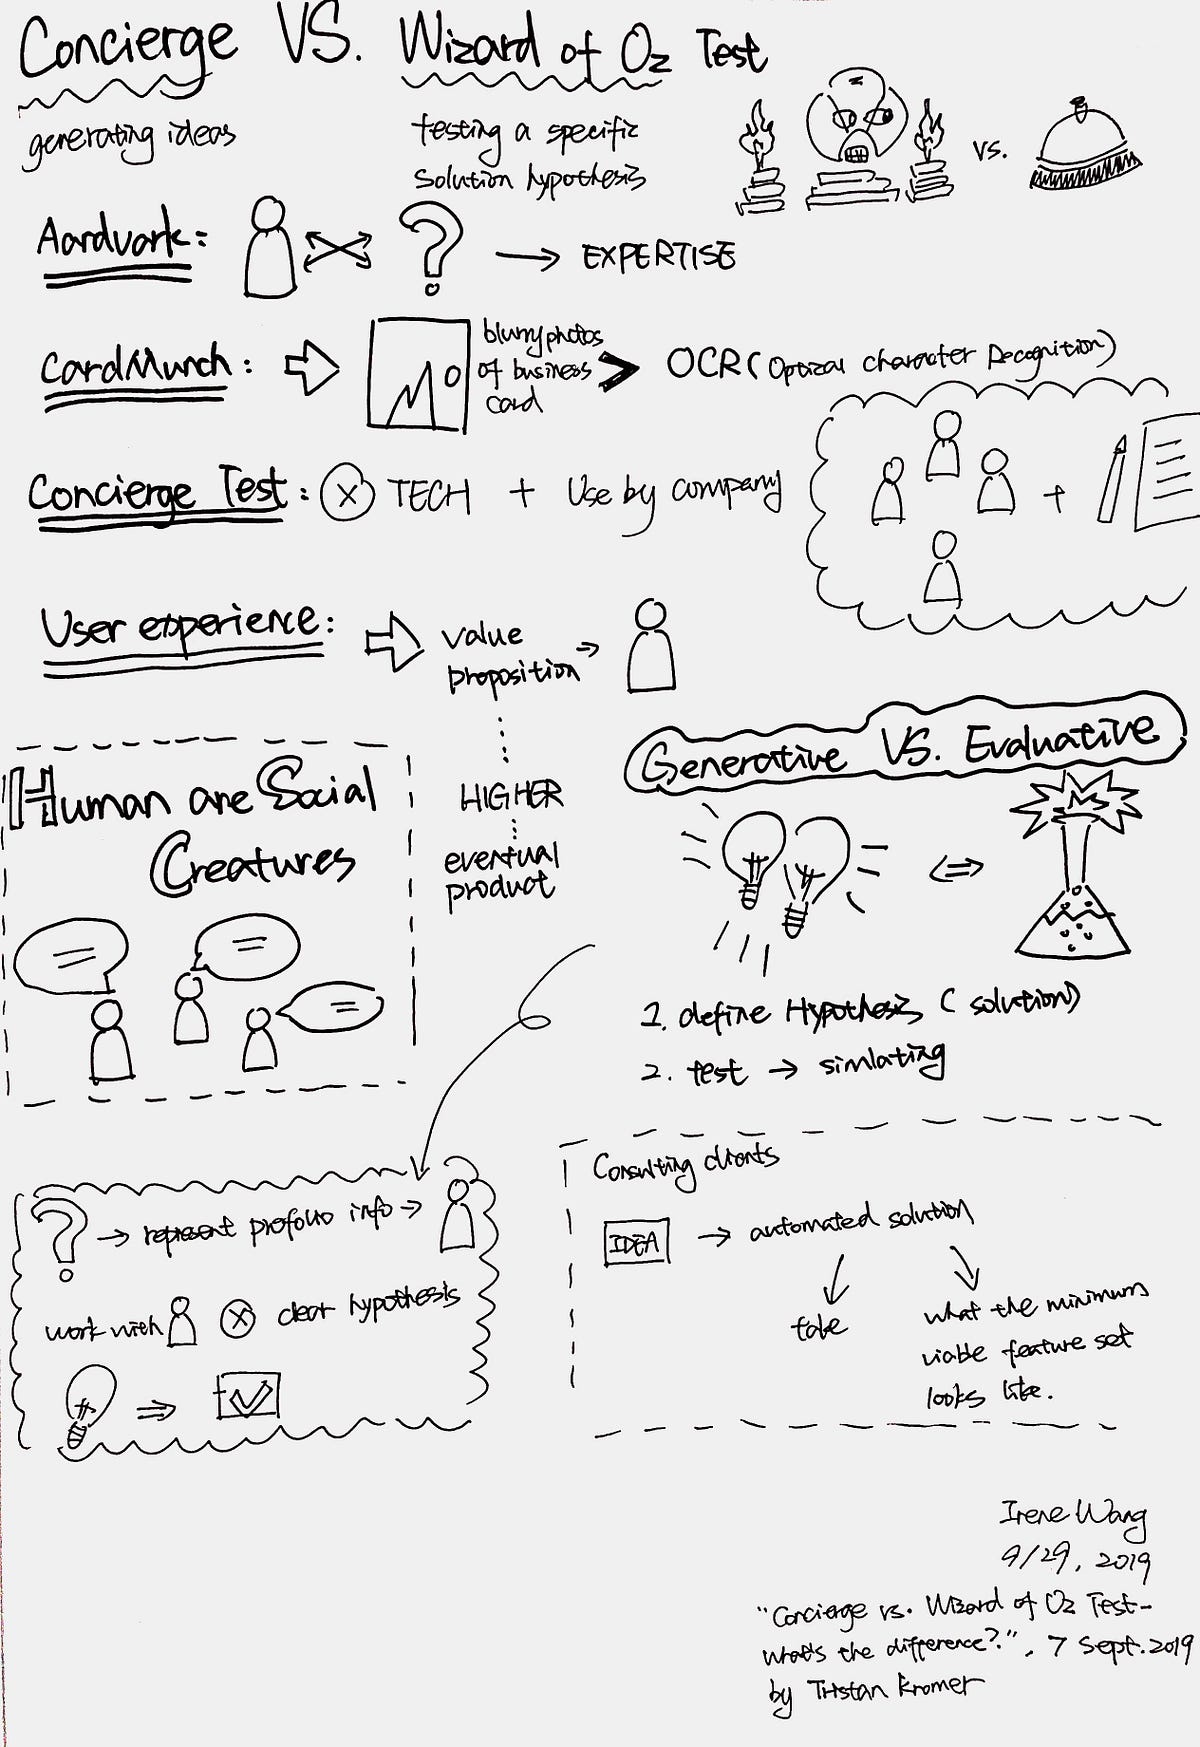 Concierge VS. Wizard of Oz Test
generating ideas
testing a specific
solution hypothesis
vs.
Aardvark:
? → EXPERTISE
CardMunch:
blurry photos
of business
card
> OCR (Optical Character Recognition)
Concierge Test: X TECH + Use by company
+
User experience:
value
proposition →
HIGHER
eventual
product
Human are Social
Creatures
Generative VS. Evaluative
1. define Hypothesis (solution)
2. test → simlating
? → represent profolio info →
work with X clear hypothesis
Consulting clients
IDEA → automated solution
take
what the minimum
viable feature set
looks like.
Irene Wang
9/29, 2019
"Concierge vs. Wizard of Oz Test-
what's the difference?", 7 Sept. 2019
by Tristan Kromer